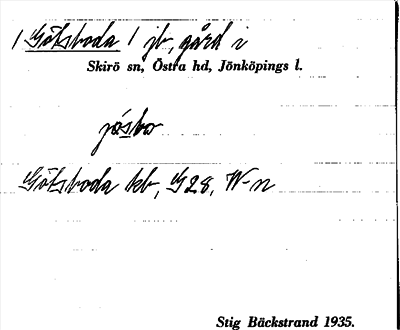 1 Götsboda 1 jb, gård i
Skirö sn, Östra hd, Jönköpings l.
jösbo
Götsboda kb, G28, W-n
Stig Bäckstrand 1935.